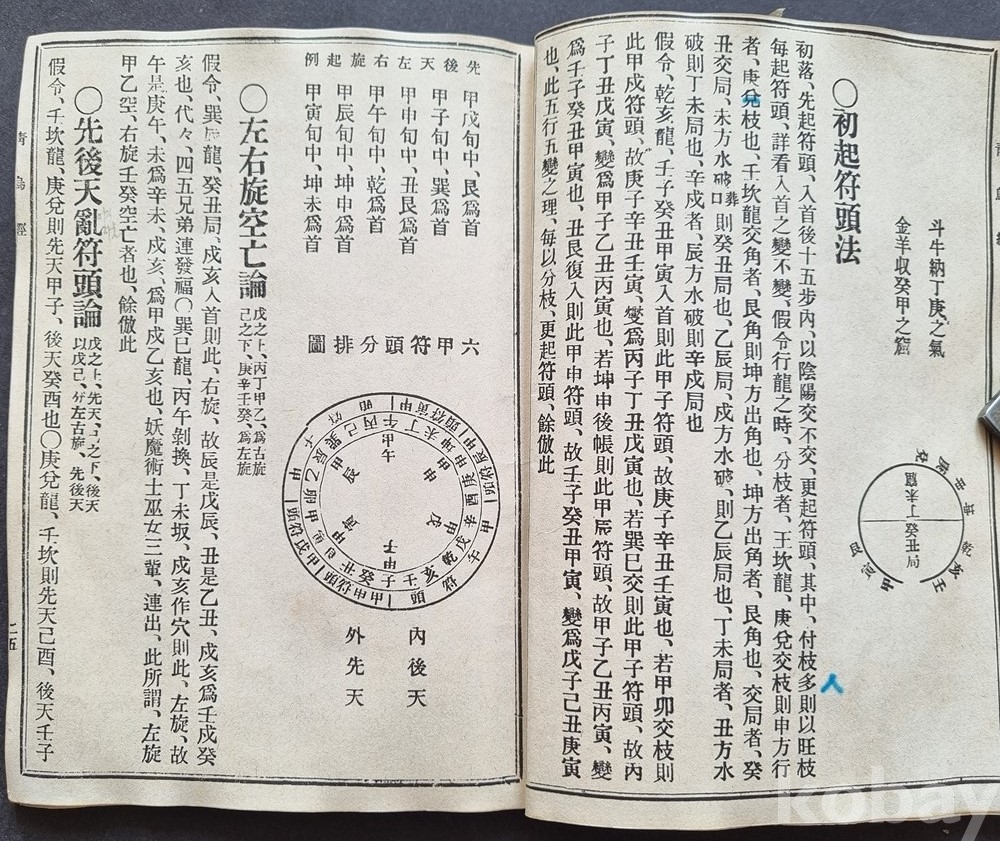 斗牛納丁庚之氣
金羊收癸甲之靈
〇初起符頭法
初落、先起符頭、入首後十五步內、以陰陽交不交、更起符頭、其中、付枝多則以旺枝
每起符頭、詳看入首之變不變、假令行龍之時、分枝者、壬坎龍、庚兌交枝則申方行
者、庚兌枝也、壬坎龍交角者、艮角則坤方出角也、坤方出角者、艮角也、交局者、癸
丑交局、未方水破口葬則癸丑局也、乙辰局、戍方水破、則乙辰局也、丁未局者、丑方水
破則丁未局也、辛戍者、辰方水破則辛戍局也
假令、乾亥龍、壬子癸丑甲寅入首則此甲子符頭、故庚子辛丑壬寅也、若甲卯交枝則
此甲戍符頭、故庚子辛丑壬寅、變爲丙子丁丑戊寅也、若巽巳交則此甲子符頭、故丙
子丁丑戊寅、變爲甲子乙丑丙寅也、若坤申後帳則此甲辰符頭、故甲子乙丑丙寅、變
爲壬子癸丑甲寅也、丑艮復入則此甲申符頭、故壬子癸丑甲寅、變爲戊子己丑庚寅
也、此五行五變之理、每以分枝、更起符頭、餘倣此
丁未龍
癸丑局
先後天左右旋起例
甲戊旬中、艮爲首
甲子旬中、巽爲首
甲申旬中、丑艮爲首
甲午旬中、乾爲首
甲辰旬中、坤申爲首
甲寅旬中、坤未爲首
六甲符頭分排圖
內後天
外先天
〇左右旋空亡論
戊之上、丙丁甲乙、爲右旋
己之下、庚辛壬癸、爲左旋
假令、巽辰龍、癸丑局、戍亥入首則此、右旋、故辰是戊辰、丑是乙丑、戍亥爲壬戍癸
亥也、代々、四五兄弟連發福〇巽巳龍、丙午剝換、丁未坂、戍亥作穴則此、左旋、故
午是庚午、未爲辛未、戍亥、爲甲戍乙亥也、妖魔術士巫女三輩、連出、此所謂、左旋
甲乙空、右旋壬癸空亡者也、餘倣此
〇先後天亂符頭論
戊之上、先天、己之下、後天
以戊己、分左右旋、先後天
假令、壬坎龍、庚兌則先天甲子、後天癸酉也〇庚兌龍、壬坎則先天己酉、後天壬子
青烏經
二五
kobay